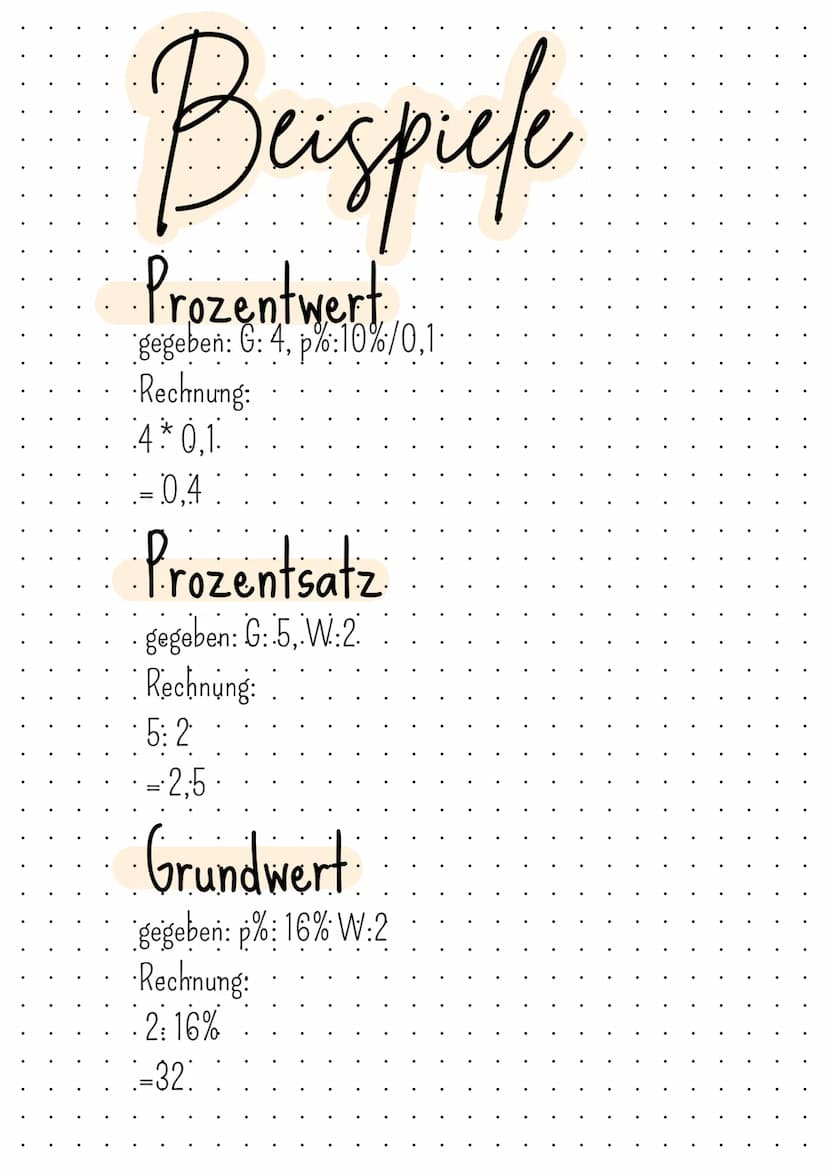 Beispiele
Prozentwert
gegeben: G: 4, p%:10%/0,1
Rechnung:
4 * 0,1
= 0,4
Prozentsatz
gegeben: G: 5, W:2
Rechnung:
5: 2
= 2,5
Grundwert
gegeben: p%: 16% W:2
Rechnung:
2: 16%
=32